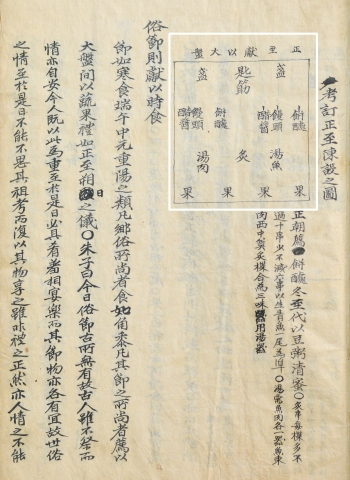 考訂正至陳設之圖
正至獻以大盤
盞
匙筋
盞
餠
饅頭
醋醬
餠
饅頭
醋醬
湯魚
炙
湯肉
果
果
果
果
正朝薦餠冬至代以豆粥清蜜○炙串每樣多不
過十串少不減六串以生青魚一尾爲準○湯需魚肉各一器魚東
肉西中奠炙樣合爲三味器用湯器
俗節則獻以時食
節如寒食端午中元重陽之類凡鄕俗所尚者食如角黍凡其節之所尚者薦以
大盤間以蔬果禮如正至朔日之儀○朱子曰今日俗節古所無有故古人雖不祭而
情亦自安今人既以此爲重至於是日必具肴羞相宴樂而其節物亦各有宜故世俗
之情至於是日不能不思其祖考而復以其物享之雖非禮之正然亦人情之不能